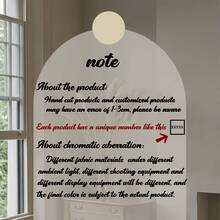 note
About the product:
Hand cut products and customized products
may have an error of 1-3cm, please be aware
Each product has a unique number like this
XXXXX
About chromatic aberration:
Different fabric materials under different
ambient light, different shooting equipment and
different display equipment will be different, and
the final color is subject to the actual product.